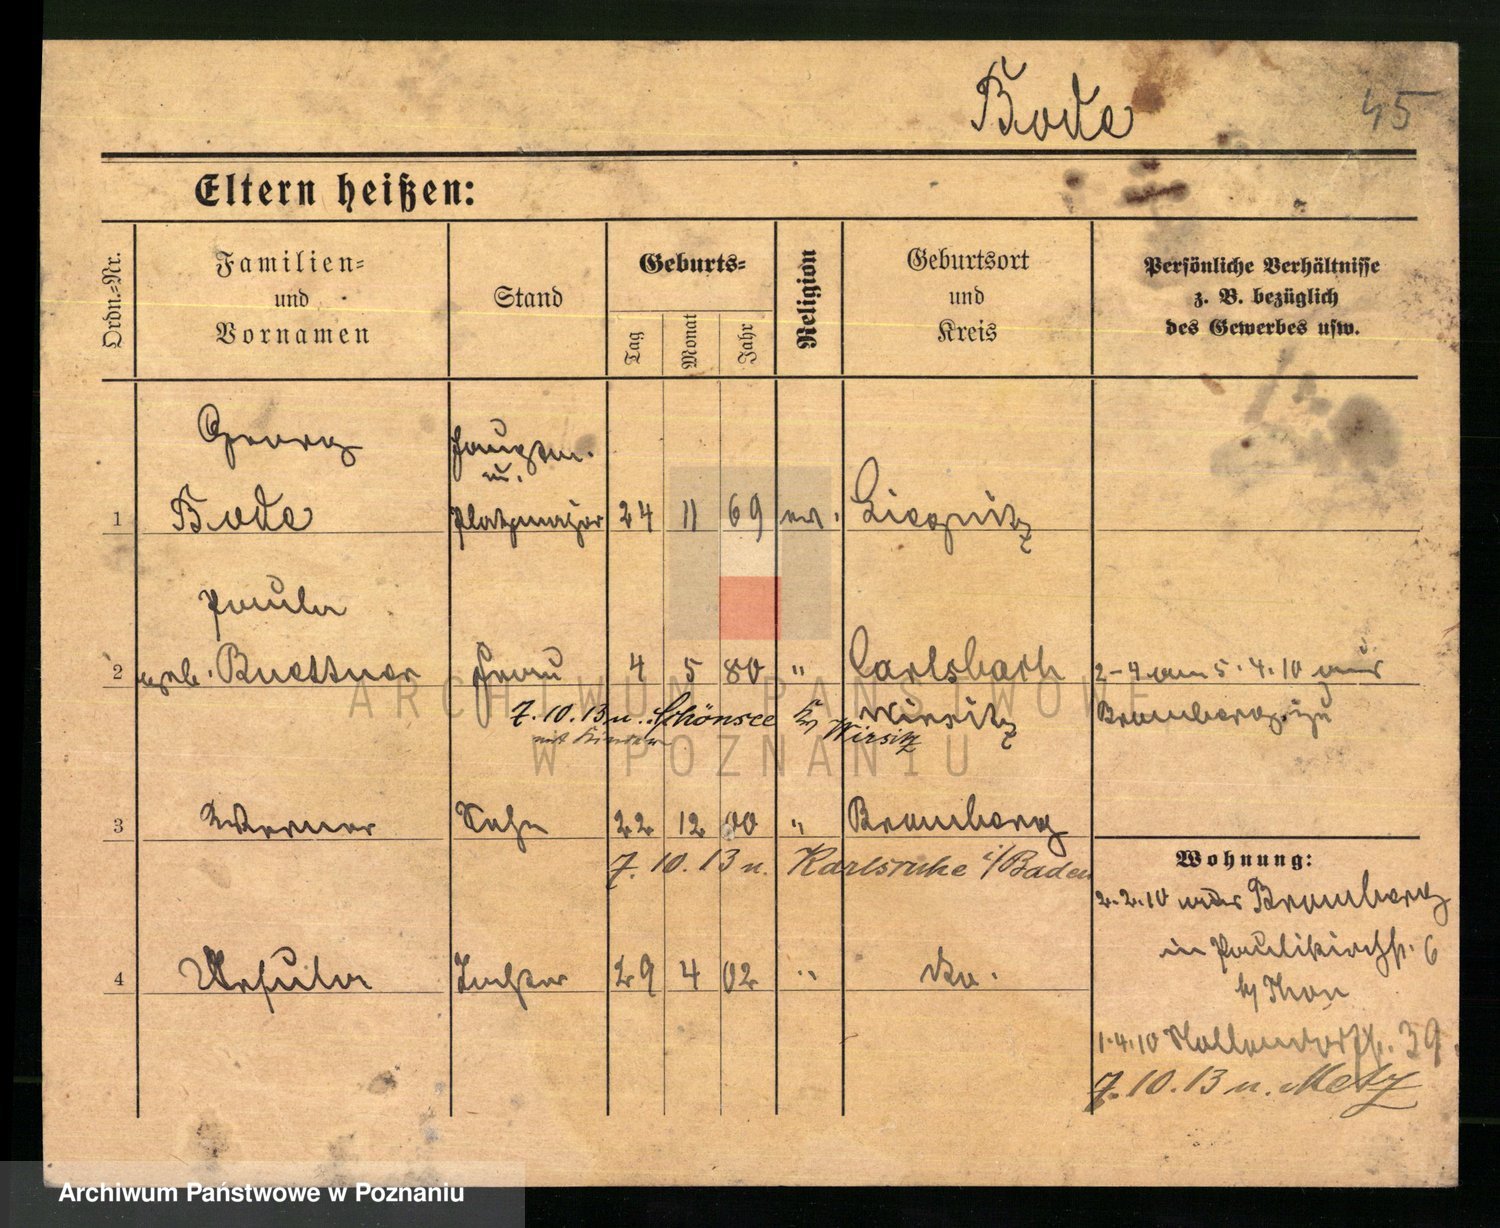 Bode 45
Eltern heißen:
Ordn.-Nr.
Familien-
und
Vornamen
Stand
Geburts-
Tag
Monat
Jahr
Religion
Geburtsort
und
Kreis
Persönliche Verhältnisse
z. B. bezüglich
des Gewerbes usw.
Georg
Hauptm.
u.
1 Bode Platzmajor 24 11 69 ev. Liegnitz
Paula
2 geb. Buettner Frau 4 5 80 " Carlsbach 2-4 am 5.4.10 aus
Wirsitz Bromberg zu
7.10.13 n. Schönsee Kr Wirsitz
mit Kindern
3 Werner Sohn 22 12 00 " Bromberg
7.10.13 n. Karlsruhe i/Baden
Wohnung:
2.2.10 Bromberg
in Paulikirchstr. 6
b/ Thon
4 Ursula Tochter 29 4 02 " do.
1.4.10 Hollendorffstr. 39.
7.10.13 n. Metz
ARCHIWUM PAŃSTWOWE
W POZNANIU
Archiwum Państwowe w Poznaniu